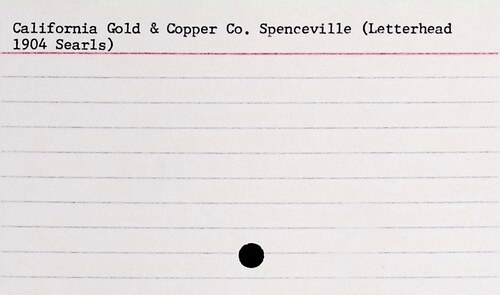 California Gold & Copper Co. Spenceville (Letterhead
1904 Searls)